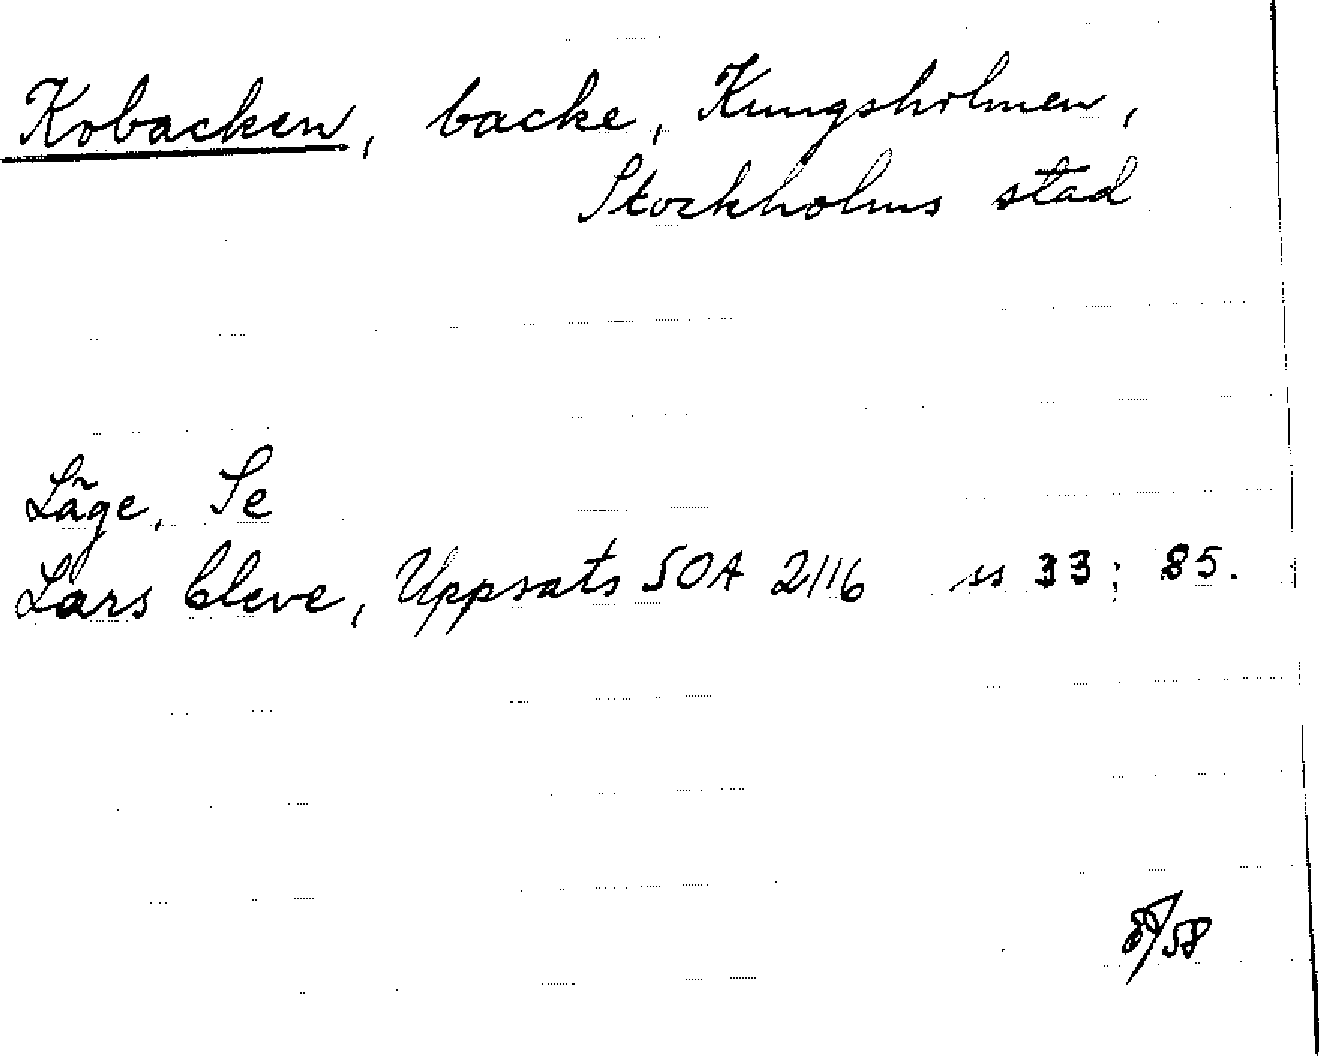 Kobacken, backe, Kungsholmen,
Stockholms stad
Läge. Se
Lars Cleve, Uppsats SOA 2116 ss 33; 85.